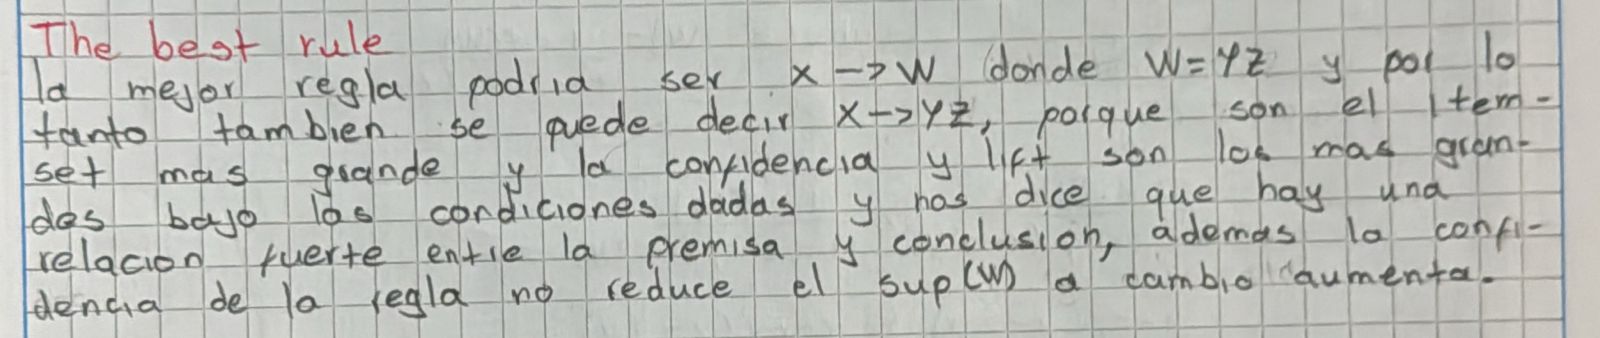 The best rule
la mejor regla podria ser x → W donde W = YZ y por lo
tanto tambien se puede decir x → YZ, porque son el Item-
set mas grande y la confidencia y lift son los mas gran-
des bajo las condiciones dadas y nos dice que hay una
relacion fuerte entre la premisa y conclusion, ademas la confi-
dencia de la regla no reduce el sup(W) a cambio aumenta.